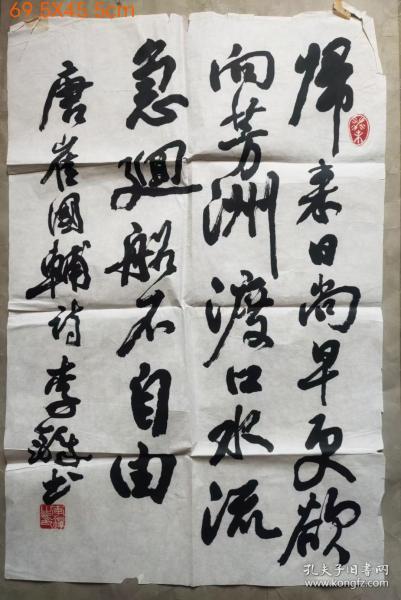 69.5X45.5cm
帰来日尚早更欲
向芳洲渡口水流
急廻船不自由
唐崔國輔詩李鐸书
孔夫子旧书网
www.kongfz.com